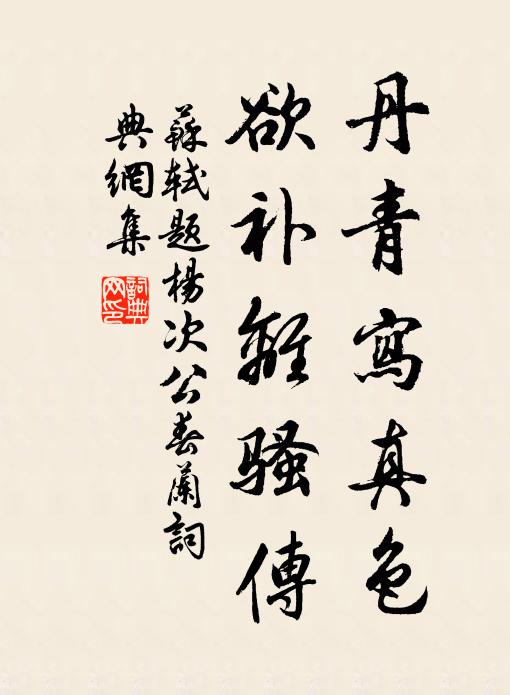 丹青寫真色
欲补離騷傳
蘇軾題楊次公春蘭詞
典網集
詞典網印